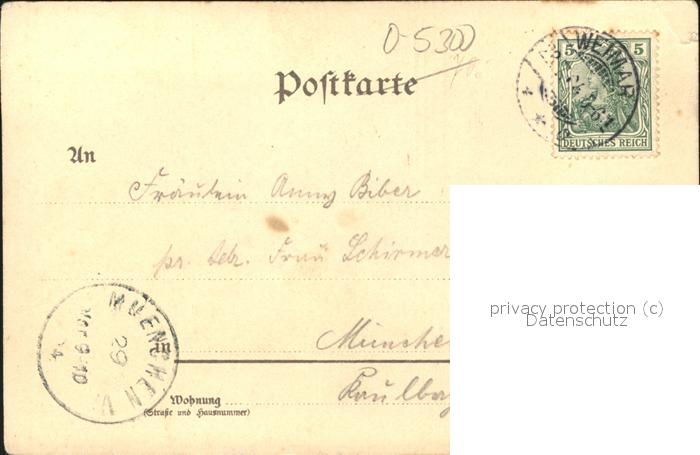 O-5300
Postkarte
5 5
WEIMAR
4
DEUTSCHES REICH
An
Fräulein Anny Biber
pr. Adr. Frau Schirmer
privacy protection (c)
Datenschutz
MUENCHEN
29
4
in Münche
Wohnung Kaulba
(Straße und Hausnummer)